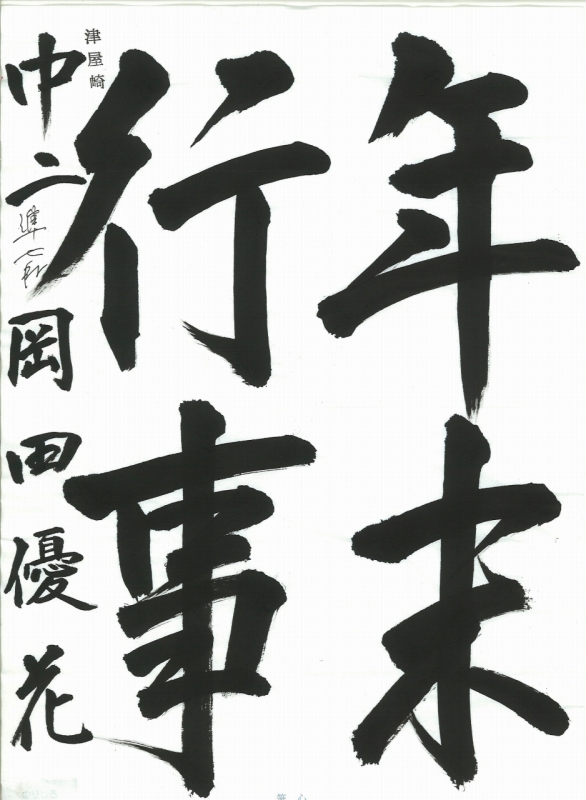 年末
行事
津屋崎
中二 準七段 岡田優花